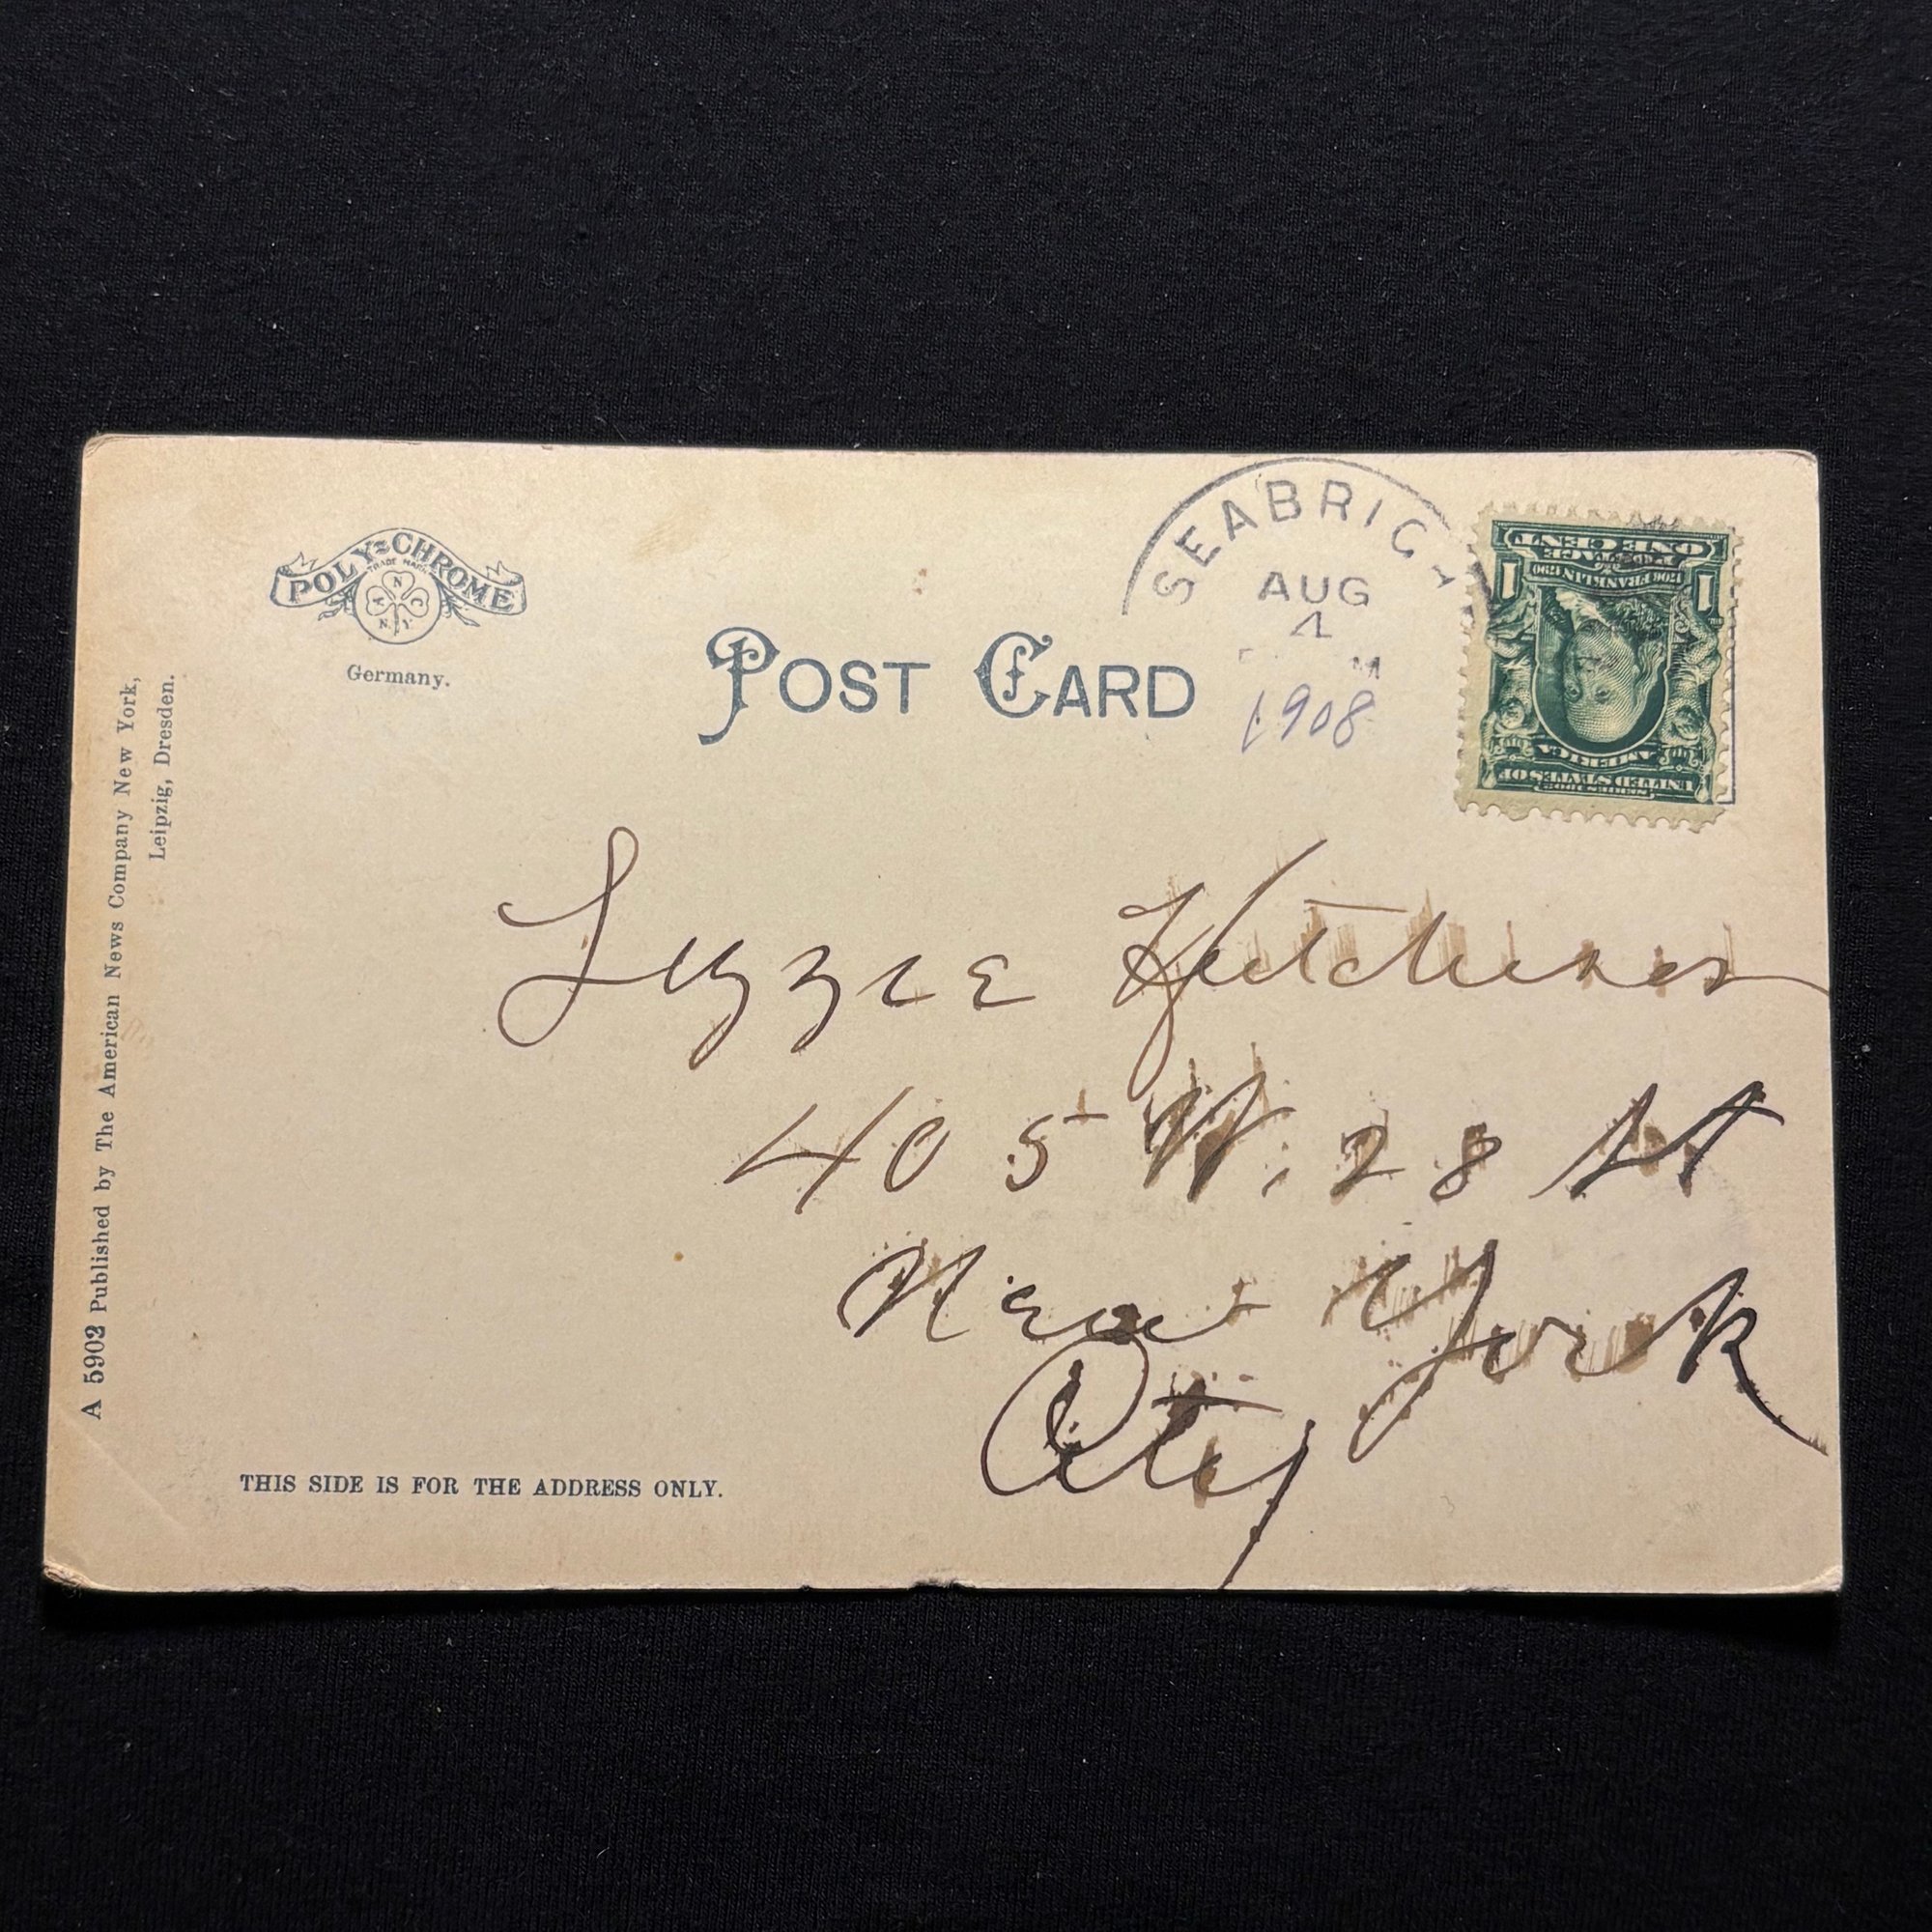 POLY-CHROME
TRADE MARK
N
A C
N.Y.
Germany.
POST CARD
SEABRIG
AUG
4
M
1908
ONE CENT
POSTAGE
1706 FRANKLIN 1790
1 1
AMERICA
UNITED STATES OF
SERIES 1902
Lizzie Hutchinson
405 W. 28 St
New York
City
THIS SIDE IS FOR THE ADDRESS ONLY.
A 5902 Published by The American News Company New York,
Leipzig, Dresden.